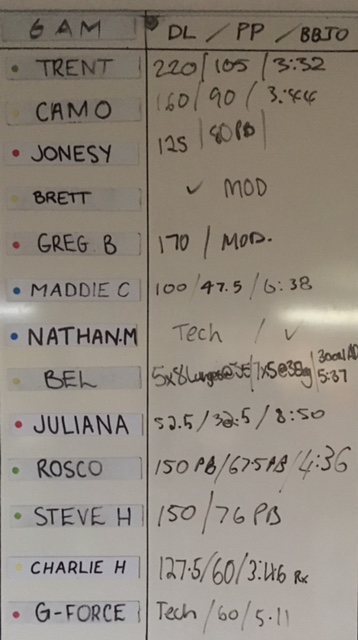 6 AM DL / PP / BBJO
TRENT 220 / 105 / 3:32
CAMO 160 / 90 / 3:44
JONESY 125 / 80 PB /
BRETT ✓ MOD
GREG B 170 / MOD.
MADDIE C 100 / 47.5 / 6:38
NATHAN.M Tech / ✓
BEL 5x8 Lunges@35 / 7x5@35kg / 5:37
JULIANA 52.5 / 32.5 / 8:50
ROSCO 150 PB / 67.5 PB / 4:36
STEVE H 150 / 76 PB
CHARLIE H 127.5 / 60 / 3:46 Rx
G-FORCE Tech / 60 / 5.11